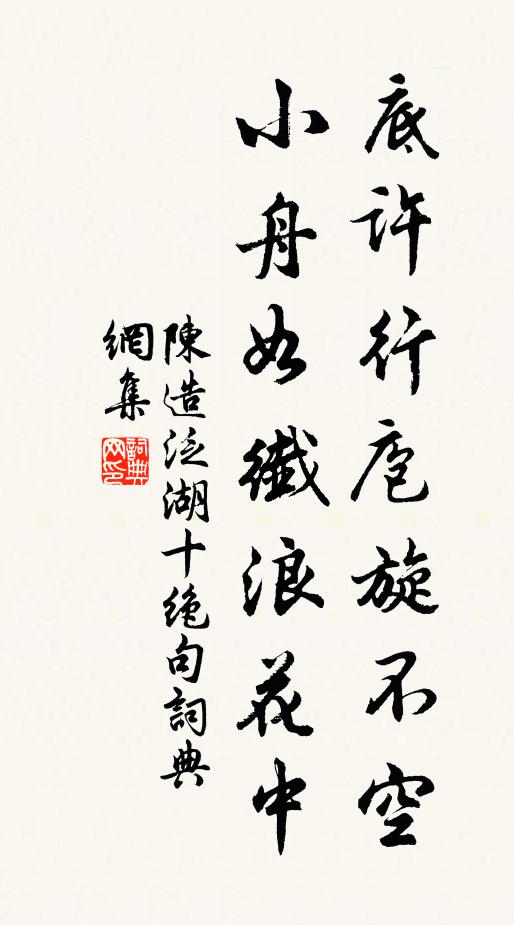 底許行庖旋不空
小舟如織浪花中
陳造泛湖十絶句詞典
網集
詞典
网印